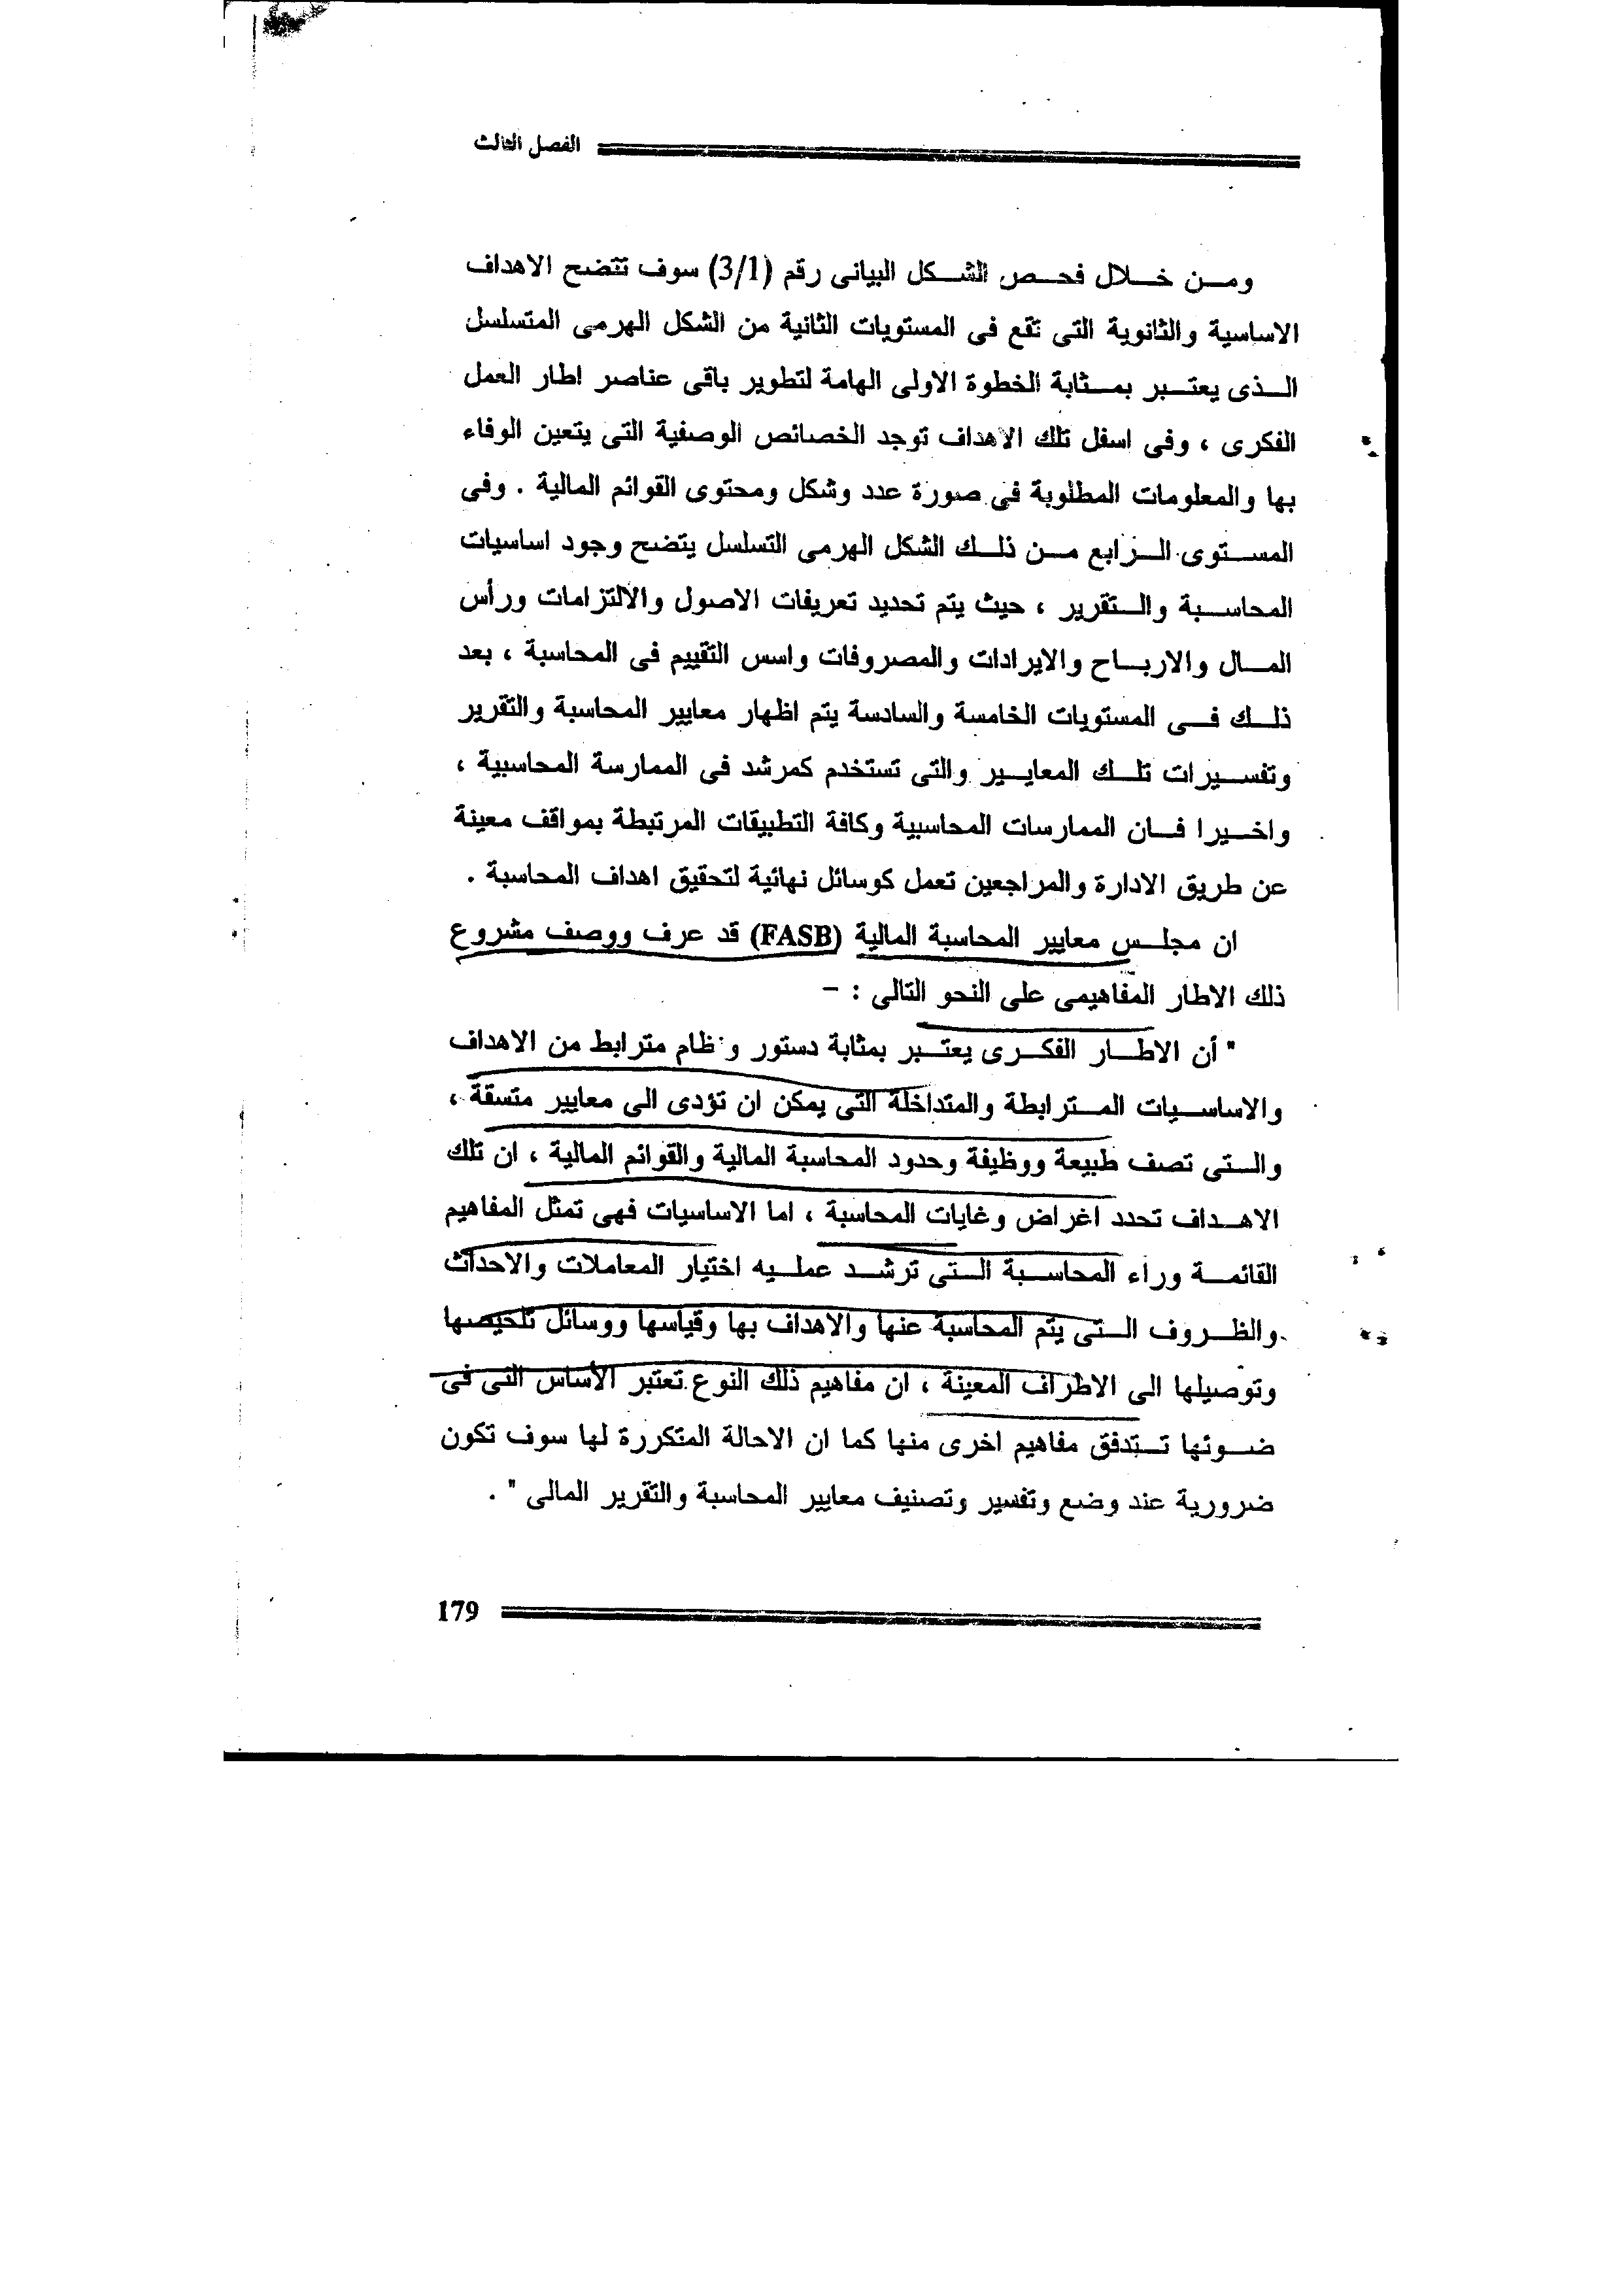 الفصل الثالث
ومن خلال فحص الشكل البيانى رقم (3/1) سوف تتضح الاهداف
الاساسية والثانوية التى تقع فى المستويات الثانية من الشكل الهرمى المتسلسل
الذى يعتبر بمثابة الخطوة الاولى الهامة لتطوير باقى عناصر اطار العمل
الفكرى ، وفى اسفل تلك الاهداف توجد الخصائص الوصفية التى يتعين الوفاء
بها والمعلومات المطلوبة فى صورة عدد وشكل ومحتوى القوائم المالية . وفى
المستوى الرابع من ذلك الشكل الهرمى التسلسل يتضح وجود اساسيات
المحاسبة والتقرير ، حيث يتم تحديد تعريفات الاصول والالتزامات ورأس
المال والارباح والايرادات والمصروفات واسس التقييم فى المحاسبة ، بعد
ذلك فى المستويات الخامسة والسادسة يتم اظهار معايير المحاسبة والتقرير
وتفسيرات تلك المعايير والتى تستخدم كمرشد فى الممارسة المحاسبية ،
واخيرا فان الممارسات المحاسبية وكافة التطبيقات المرتبطة بمواقف معينة
عن طريق الادارة والمراجعين تعمل كوسائل نهائية لتحقيق اهداف المحاسبة .
ان مجلس معايير المحاسبة المالية (FASB) قد عرف ووصف مشروع
ذلك الاطار المفاهيمى على النحو التالى : -
" أن الاطار الفكرى يعتبر بمثابة دستور و ظام مترابط من الاهداف
والاساسيات المترابطة والمتداخلة التى يمكن ان تؤدى الى معايير متسقة ،
والتى تصف طبيعة ووظيفة وحدود المحاسبة المالية والقوائم المالية ، ان تلك
الاهداف تحدد اغراض وغايات المحاسبة ، اما الاساسيات فهى تمثل المفاهيم
القائمة وراء المحاسبة التى ترشد عمليه اختيار المعاملات والاحداث
والظروف التى يتم المحاسبة عنها والاهداف بها وقياسها ووسائل تلخيصها
وتوصيلها الى الاطراف المعينة ، ان مفاهيم ذلك النوع تعتبر الأساس التى فى
ضوئها تستدفق مفاهيم اخرى منها كما ان الاحالة المتكررة لها سوف تكون
ضرورية عند وضع وتفسير وتصنيف معايير المحاسبة والتقرير المالى " .
179